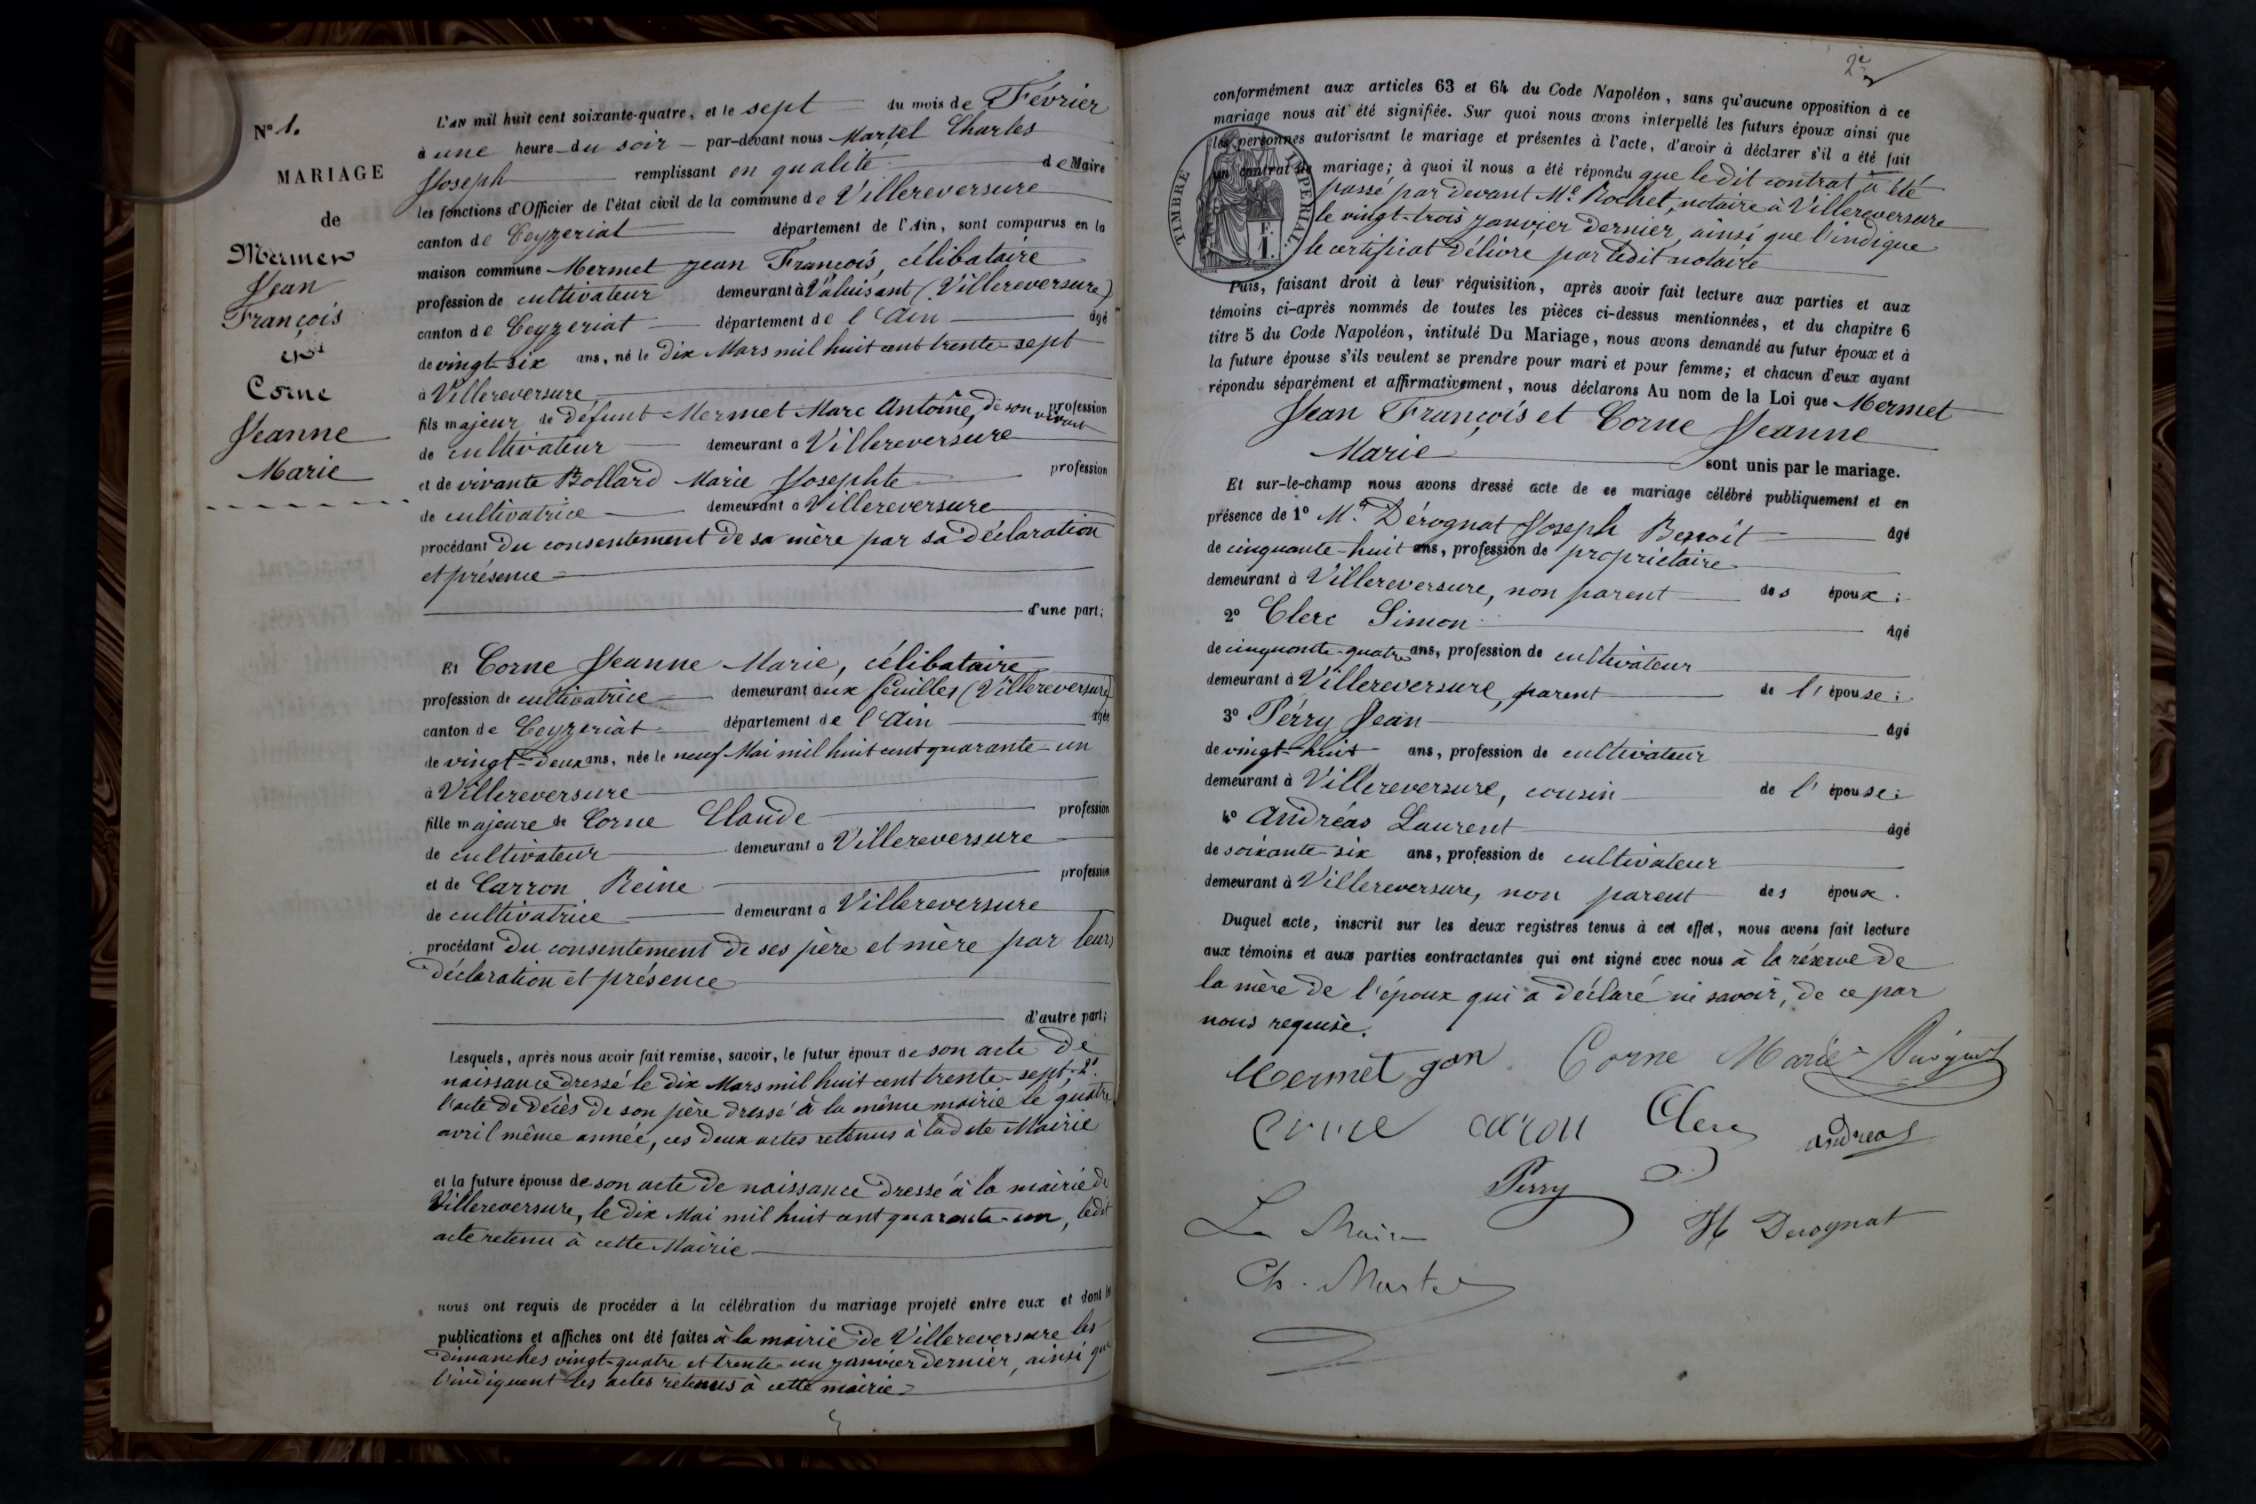 N° 1.
MARIAGE
de
Mermet
Jean
François
et
Corne
Jeanne
Marie
L'an mil huit cent soixante-quatre, et le sept du mois de Février
à une heure du soir par-devant nous Martel Charles
Joseph remplissant en qualité de Maire
les fonctions d'Officier de l'état civil de la commune de Villereversure
canton de Ceyzeriat département de l'Ain, sont comparus en la
maison commune Mermet Jean François, célibataire
profession de cultivateur demeurant à Valuisant (Villereversure)
canton de Ceyzeriat département de l'Ain âgé
de vingt-six ans, né le dix Mars mil huit cent trente-sept
à Villereversure
fils majeur de défunt Mermet Marc Antoine, de son vivant profession
de cultivateur demeurant à Villereversure
et de vivante Bollard Marie Josephte profession
de cultivatrice demeurant à Villereversure
procédant du consentement de sa mère par sa déclaration
et présence
d'une part;
Et Corne Jeanne Marie, célibataire
profession de cultivatrice demeurant aux feuilles (Villereversure)
canton de Ceyzeriat département de l'Ain âgée
de vingt-deux ans, née le neuf Mai mil huit cent quarante-un
à Villereversure
fille majeure de Corne Claude profession
de cultivateur demeurant à Villereversure
et de Carron Reine profession
de cultivatrice demeurant à Villereversure
procédant du consentement de ses père et mère par leurs
déclaration et présence
d'autre part;
Lesquels, après nous avoir fait remise, savoir, le futur époux de son acte de
naissance dressé le dix Mars mil huit cent trente-sept, 2°
l'acte de décès de son père dressé à la même mairie le quatre
avril même année, ces deux actes retenus à ladite Mairie
et la future épouse de son acte de naissance dressé à la mairie de
Villereversure, le dix Mai mil huit cent quarante-un, ledit
acte retenu à cette Mairie
nous ont requis de procéder à la célébration du mariage projeté entre eux et dont les
publications et affiches ont été faites à la mairie de Villereversure les
dimanches vingt-quatre et trente-un janvier dernier, ainsi que
l'indiquent les actes retenus à cette mairie
2e
conformément aux articles 63 et 64 du Code Napoléon, sans qu'aucune opposition à ce
mariage nous ait été signifiée. Sur quoi nous avons interpellé les futurs époux ainsi que
les personnes autorisant le mariage et présentes à l'acte, d'avoir à déclarer s'il a été fait
un contrat de mariage; à quoi il nous a été répondu que ledit contrat a été
passé par devant Me Rochet, notaire à Villereversure
le vingt-trois janvier dernier, ainsi que l'indique
le certificat délivré par ledit notaire
TIMBRE IMPÉRIAL.
1 F.
Puis, faisant droit à leur réquisition, après avoir fait lecture aux parties et aux
témoins ci-après nommés de toutes les pièces ci-dessus mentionnées, et du chapitre 6
titre 5 du Code Napoléon, intitulé Du Mariage, nous avons demandé au futur époux et à
la future épouse s'ils veulent se prendre pour mari et pour femme; et chacun d'eux ayant
répondu séparément et affirmativement, nous déclarons Au nom de la Loi que Mermet
Jean François et Corne Jeanne
Marie sont unis par le mariage.
Et sur-le-champ nous avons dressé acte de ce mariage célébré publiquement et en
présence de 1° Mr Dérognat Joseph Benoît âgé
de cinquante-huit ans, profession de propriétaire
demeurant à Villereversure, non parent des époux;
2° Clerc Simon âgé
de cinquante-quatre ans, profession de cultivateur
demeurant à Villereversure, parent de l'épouse;
3° Pérry Jean âgé
de vingt-huit ans, profession de cultivateur
demeurant à Villereversure, cousin de l'épouse;
4° Andréas Laurent âgé
de soixante-six ans, profession de cultivateur
demeurant à Villereversure, non parent des époux.
Duquel acte, inscrit sur les deux registres tenus à cet effet, nous avons fait lecture
aux témoins et aux parties contractantes qui ont signé avec nous à la réserve de
la mère de l'époux qui a déclaré ni savoir, de ce par
nous requise.
Mermet gan Corne Marie Dérognat
Corne caron Clerc andreas
Perry
Le Maire H Derognat
Ch. Martel